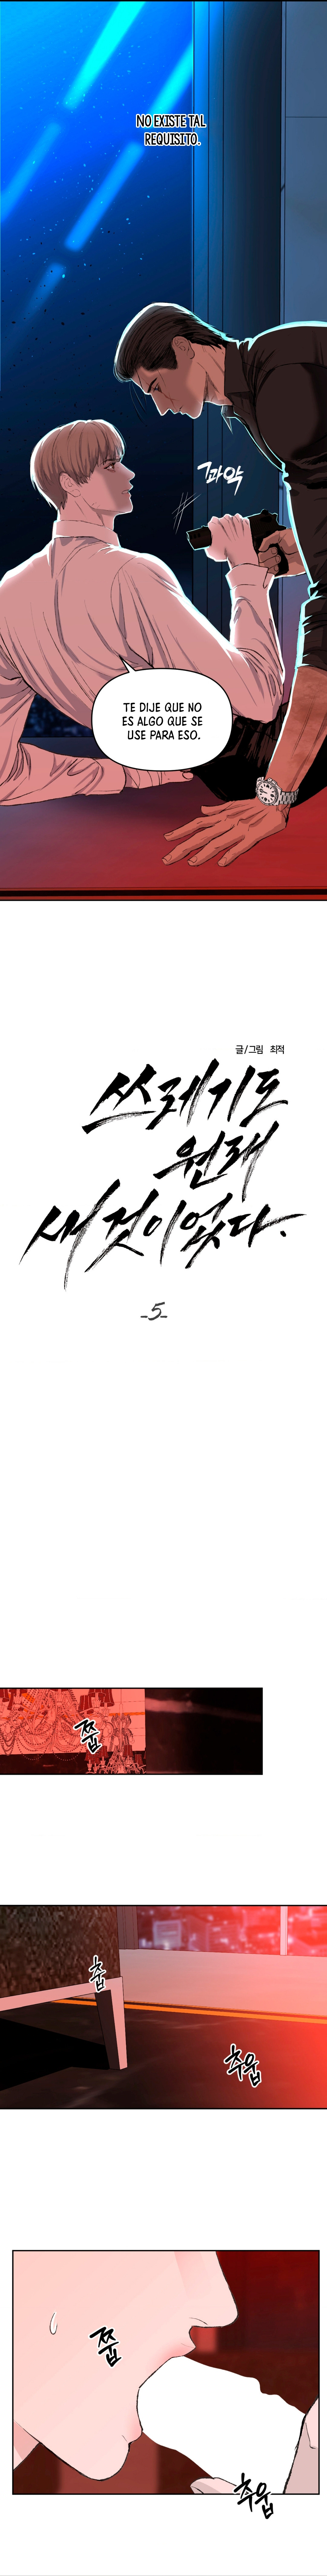 NO EXISTE TAL
REQUISITO.
콰악
TE DIJE QUE NO
ES ALGO QUE SE
USE PARA ESO.
글/그림 최적
쓰레기도
원래
새것이었다.
-5-
쭙
춥
추웁
쭙
추웁